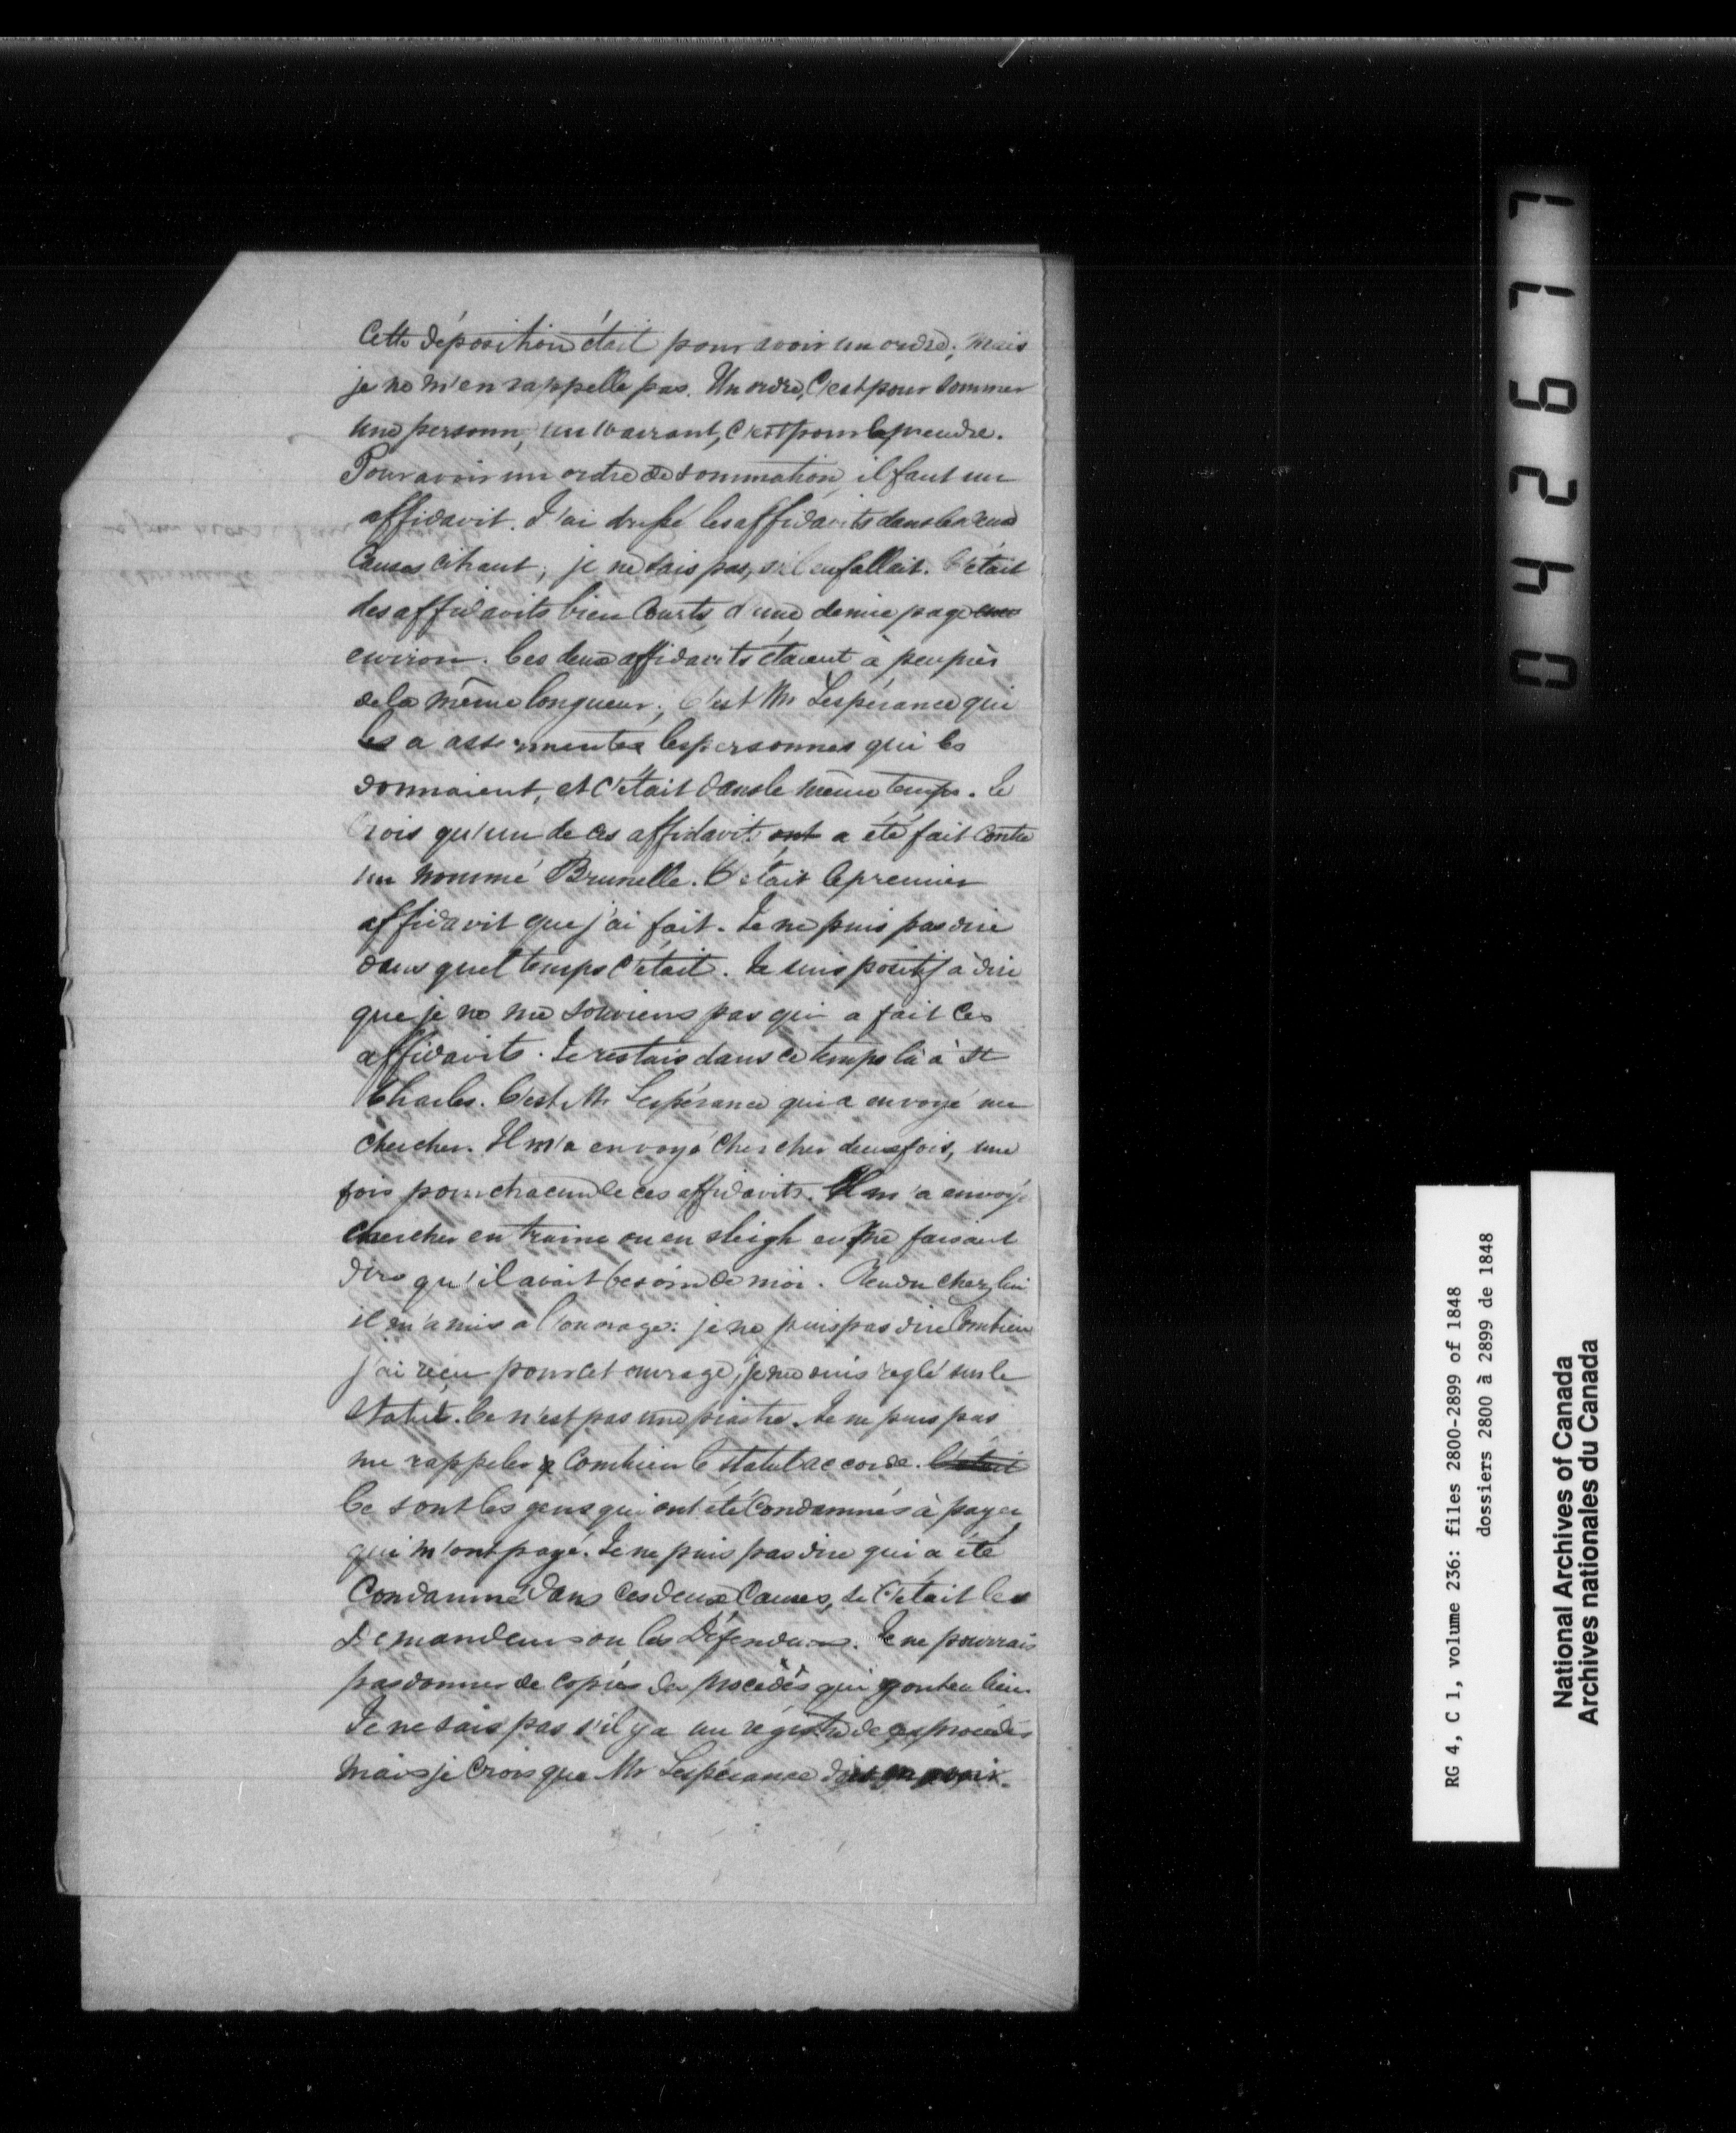 Cette déposition était pour avoir un ordre; mais
je ne m'en rappelle pas. Un ordre, c'est pour sommer
une personne, un warrant, c'est pour le prendre.
Pour avoir un ordre de sommation il faut un
affidavit. J'ai dressé les affidavits dans les deux
Causes citant; je ne sais pas, s'il en fallait. C'était
des affidavits bien Courts, d'une demie page
environ. Ces deux affidavits étaient à peu près
de la même longueur; c'est Mr Lespérance qui
les a assermentés les personnes qui les
donnaient, et c'était dans le même temps. Je
Crois qu'un de ces affidavits ont a été fait Contre
un nommé Brunelle. C'était le premier
affidavit que j'ai fait. Je ne puis pas dire
dans quel temps c'était. Je suis positif à dire
que je ne me souviens pas qui a fait Ces
affidavits. Je restais dans ce temps là à St
Charles. C'est Mr Lespérance qui a envoyé me
chercher. Il m'a envoyé chercher deux fois, une
fois pour chacun de ces affidavits. Il m'a envoyé
chercher en traine ou en sleigh en me faisant
dire qu'il avait besoin de moi. Rendu chez lui
il m'a mis à l'ouvrage: je ne puis pas dire Combien
j'ai reçu pour cet ouvrage, je me suis reglé sur le
Statut. Ce n'est pas une piastre. Je ne puis pas
me rappeler Combien le statut accorde. C'était
Ce sont les gens qui ont été Condamnés à payer
qui m'ont payé. Je ne puis pas dire qui a été
Condamné dans ces deux Causes, si c'était les
Demandeurs ou les Défendeurs. Je ne pourrais
pas donner de copies des procédés qui y ont eu lieu.
Je ne sais pas s'il y a un régistre de ces procédés
mais je Crois que Mr Lespérance doit en avoir.
042677
RG 4, C 1, volume 236: files 2800-2899 of 1848
dossiers 2800 à 2899 de 1848
National Archives of Canada
Archives nationales du Canada